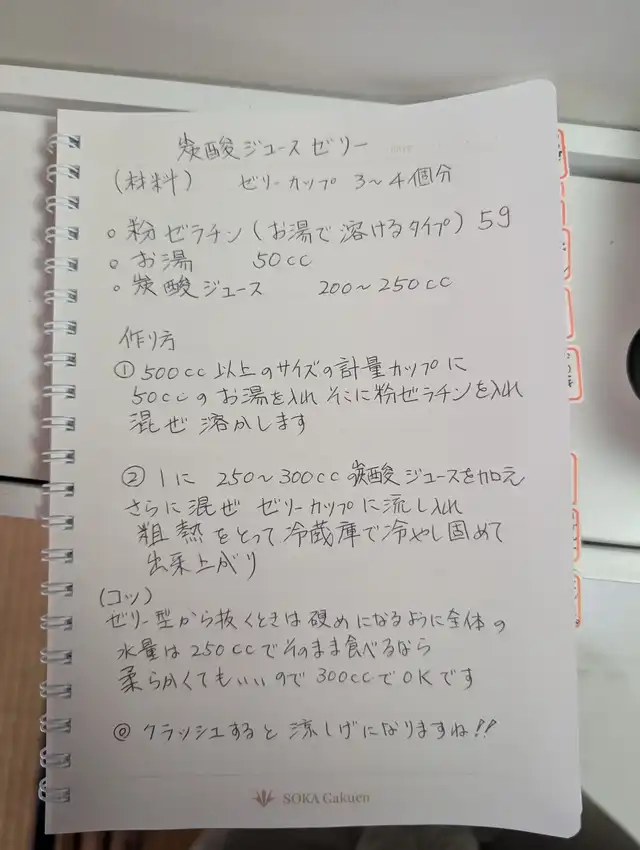 炭酸ジュースゼリー
(材料) ゼリーカップ 3〜4個分
○ 粉ゼラチン(お湯で溶けるタイプ) 5g
○ お湯 50cc
○ 炭酸ジュース 200〜250cc
作り方
① 500cc以上のサイズの計量カップに
50ccのお湯を入れそこに粉ゼラチンを入れ
混ぜ溶かします
② 1に 250〜300cc炭酸ジュースを加え
さらに混ぜ ゼリーカップに流し入れ
粗熱をとって冷蔵庫で冷やし固めて
出来上がり
(コツ)
ゼリー型から抜くときは硬めになるように全体の
水量は250ccでそのまま食べるなら
柔らかくてもいいので300ccでOKです
◎ クラッシュすると涼しげになりますね!!
SOKA Gakuen